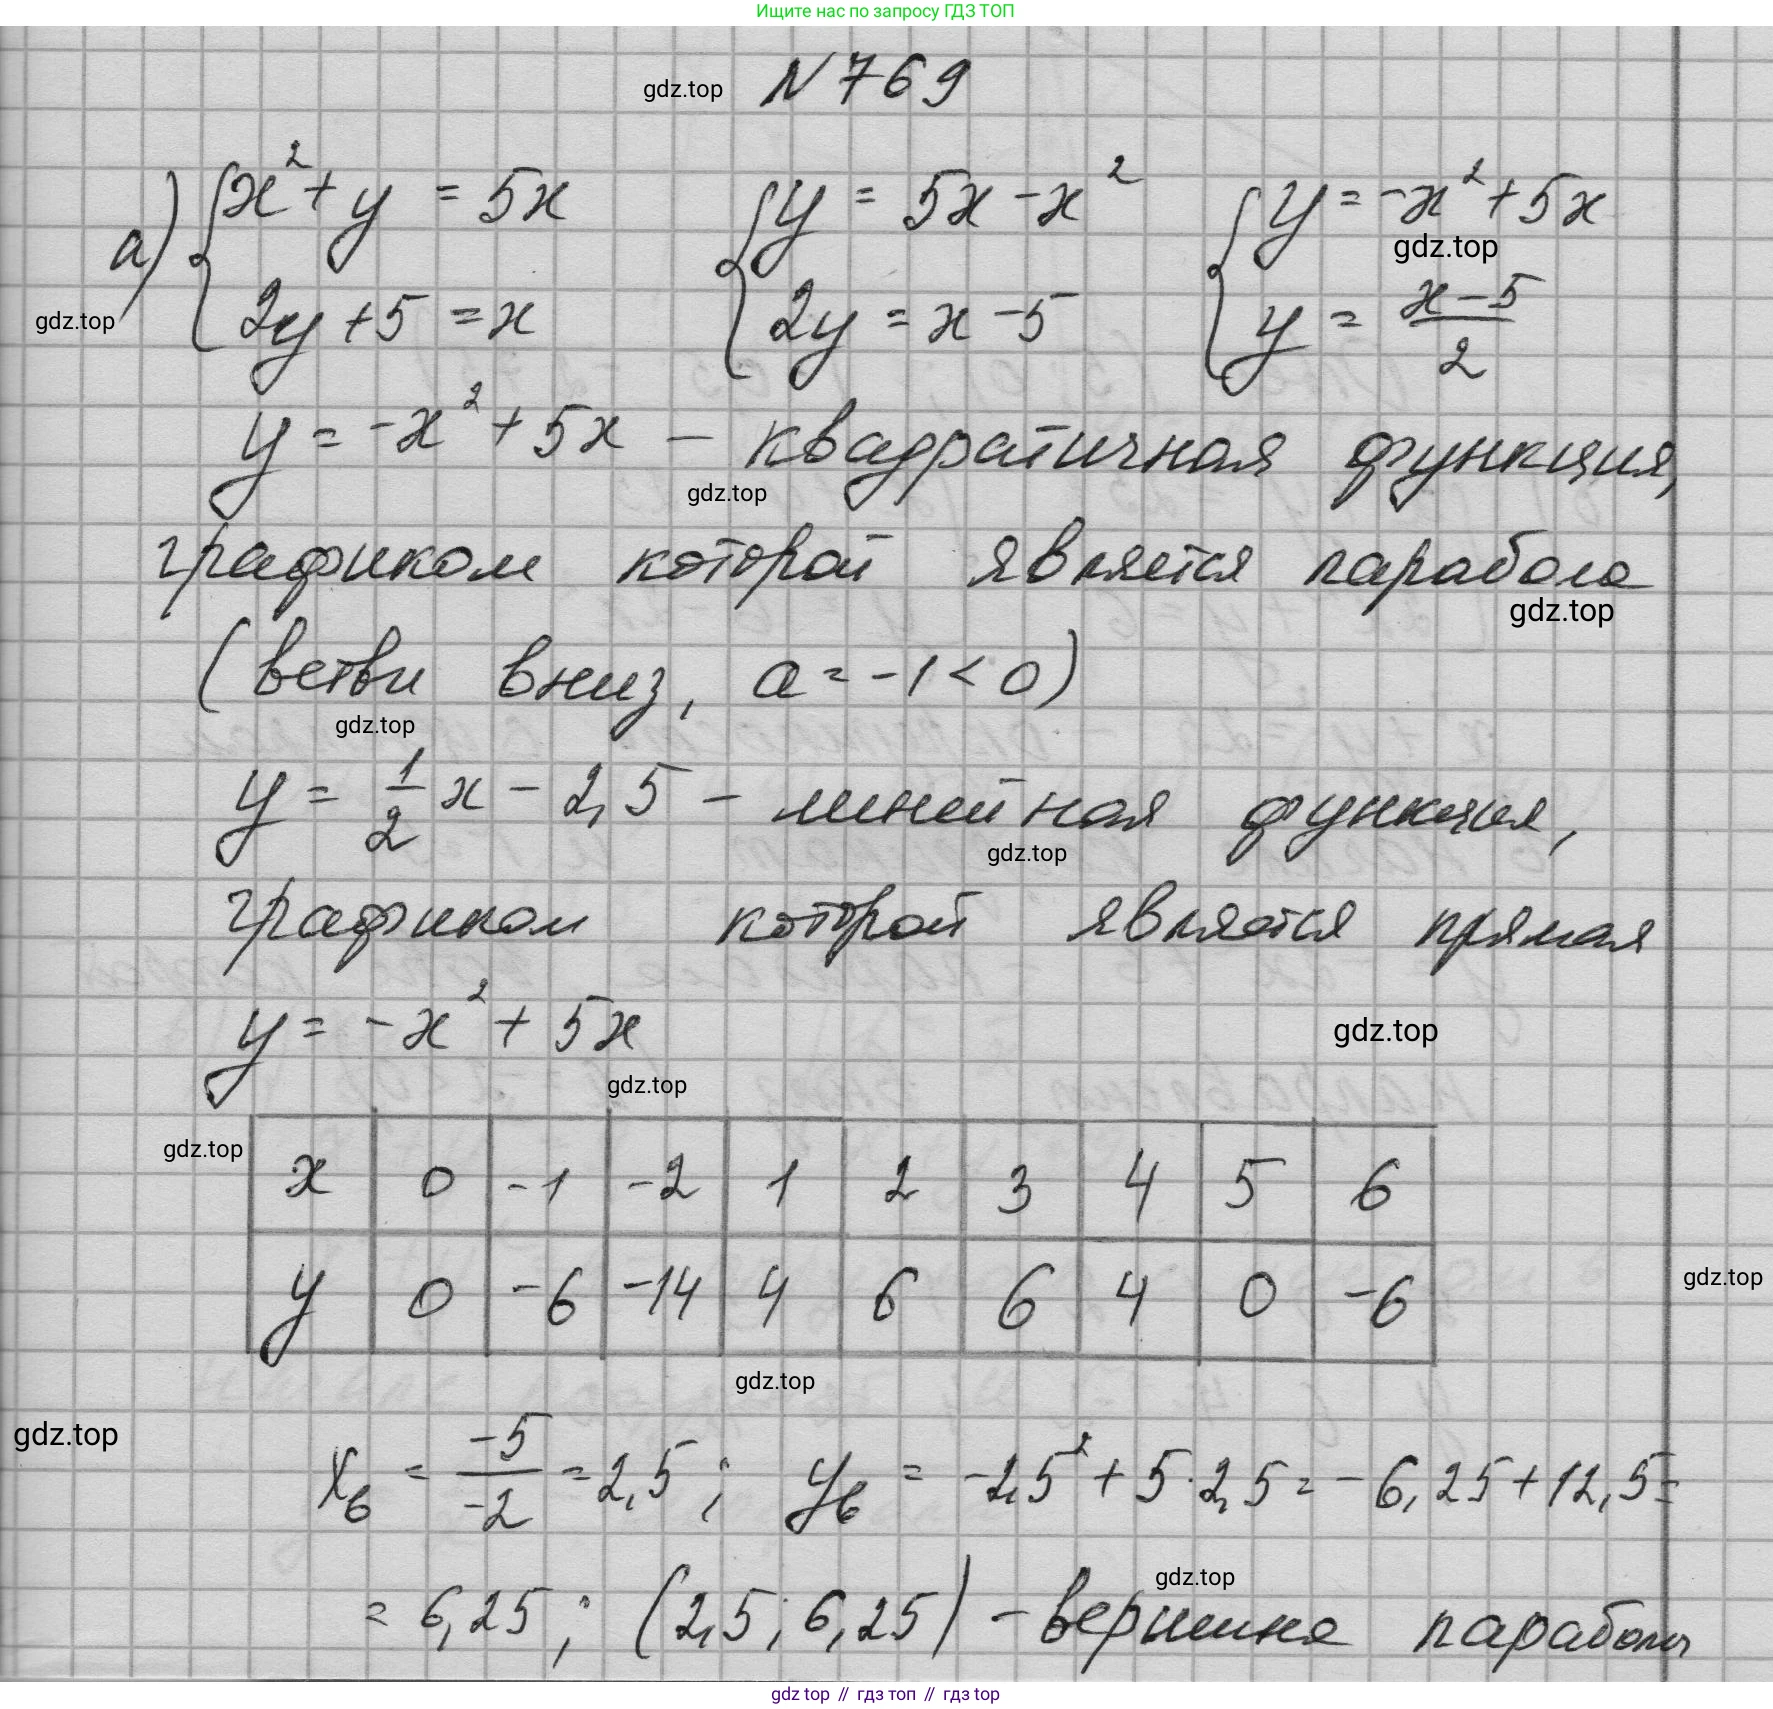 Ищите нас по запросу ГДЗ ТОП
gdz.top N 769
а) { x² + y = 5x { y = 5x - x² { y = -x² + 5x
gdz.top
2y + 5 = x 2y = x - 5 y = (x - 5)/2
gdz.top
y = -x² + 5x – квадратичная функция,
gdz.top
графиком которой является парабола
gdz.top
(ветви вниз, a = -1 < 0)
gdz.top
y = 1/2 x - 2,5 – линейная функция,
gdz.top
графиком которой является прямая
y = -x² + 5x
gdz.top
gdz.top
gdz.top
x 0 -1 -2 1 2 3 4 5 6
y 0 -6 -14 4 6 6 4 0 -6
gdz.top
gdz.top
gdz.top
xв = -5/-2 = 2,5 ; yв = -2,5² + 5·2,5 = -6,25 + 12,5 =
gdz.top
= 6,25 ; (2,5 ; 6,25) – вершина параболы
gdz top // гдз топ // гдз top